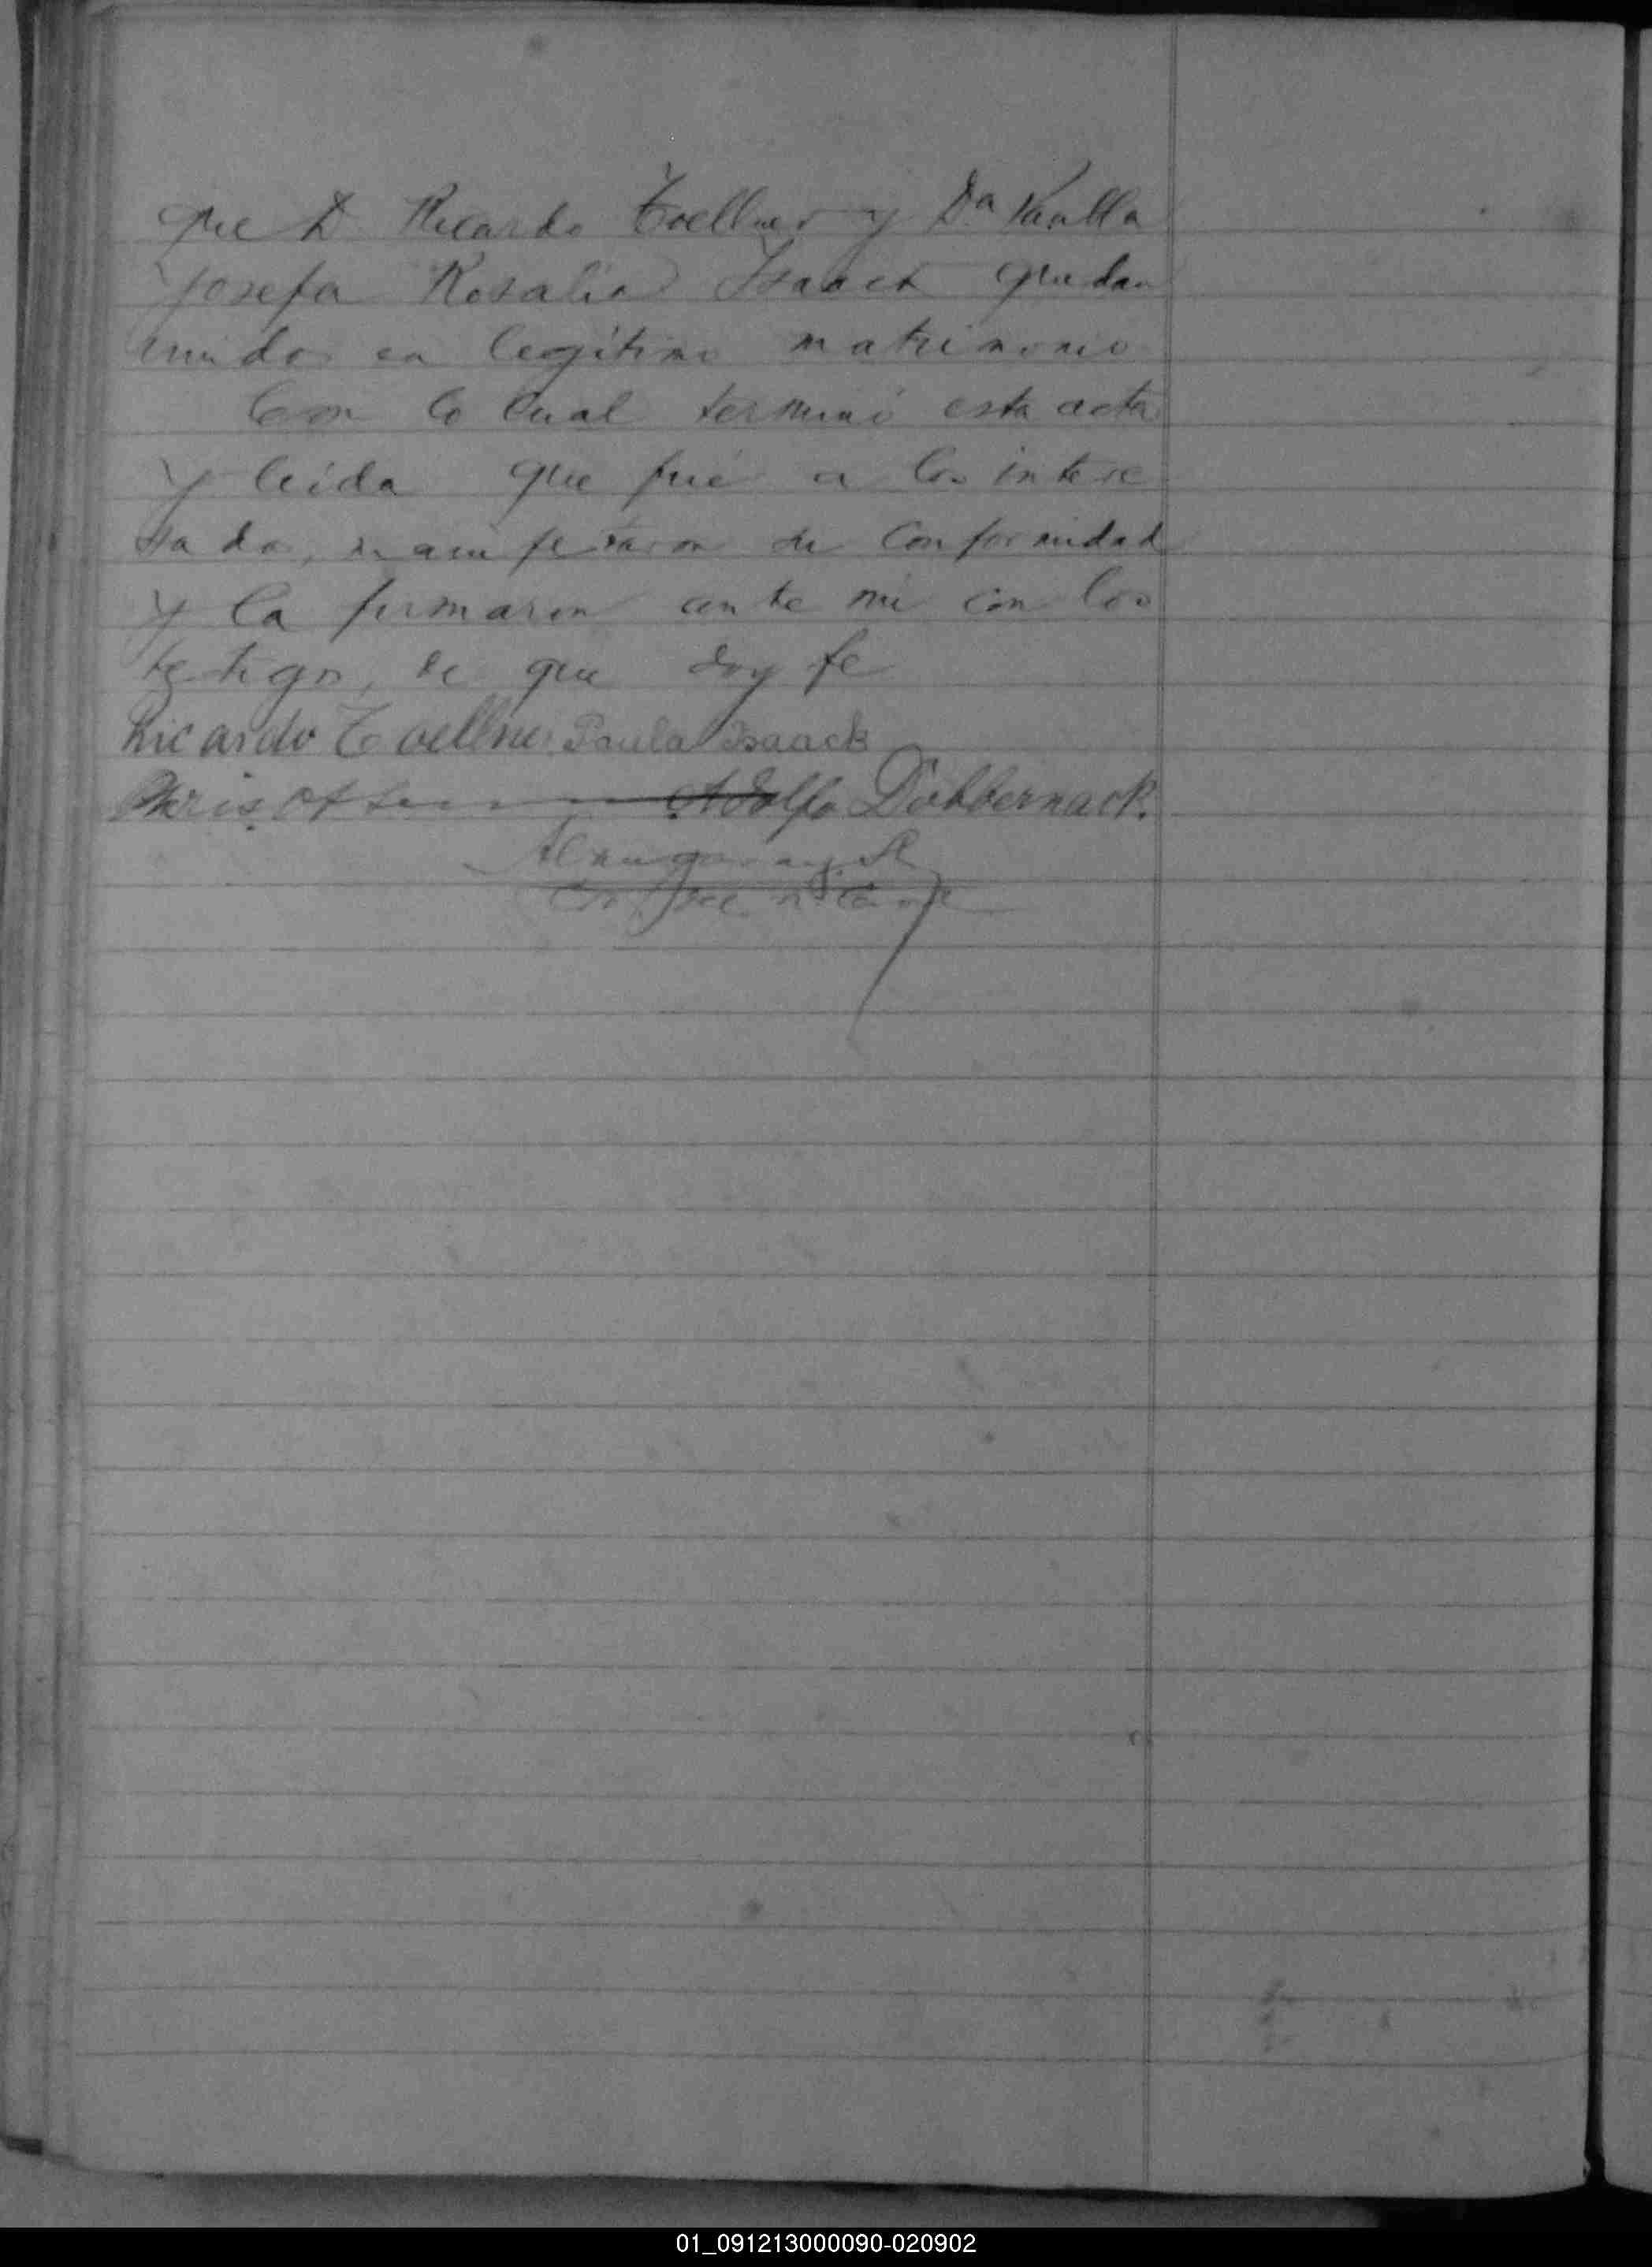 que D Ricardo Toellner y Da Paulla
Josefa Rosalia Isaack quedan
unidos en legítimo matrimonio
Con lo cual terminó esta acta
y leida que fué a los intere
sados, manifestaron su conformidad
y la firmaron ante mi con los
testigos, de que doy fe
Ricardo Toellner Paula Isaack
Adolfo Dobbernack.
01_091213000090-020902